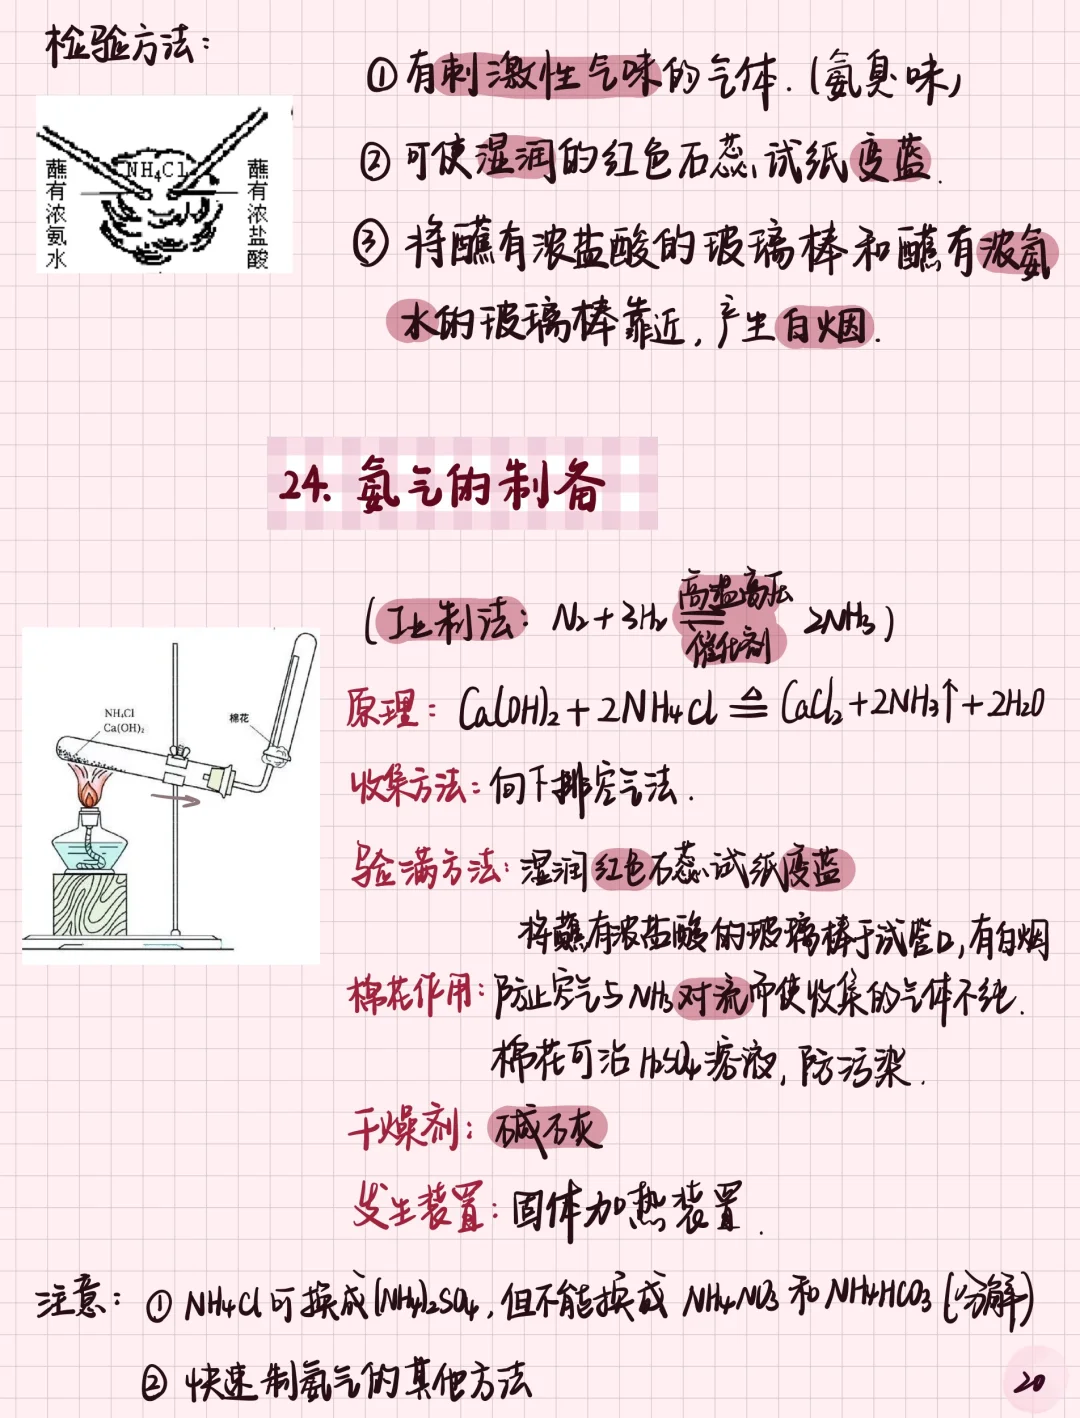 检验方法:
①有刺激性气味的气体.(氨臭味)
②可使湿润的红色石蕊试纸变蓝.
③将蘸有浓盐酸的玻璃棒和蘸有浓氨
水的玻璃棒靠近,产生白烟.
蘸有浓氨水
NH₄Cl
蘸有浓盐酸
24.氨气的制备
(工业制法: N₂+3H₂ 高温高压 ⇌ 催化剂 2NH₃)
原理: Ca(OH)₂+2NH₄Cl ≜ CaCl₂+2NH₃↑+2H₂O
NH₄Cl
Ca(OH)₂
棉花
收集方法:向下排空气法.
验满方法:湿润红色石蕊试纸变蓝
将蘸有浓盐酸的玻璃棒于试管口,有白烟
棉花作用:防止空气与NH₃对流而使收集的气体不纯.
棉花可沾H₂SO₄溶液,防污染.
干燥剂:碱石灰
发生装置:固体加热装置.
注意:①NH₄Cl可换成(NH₄)₂SO₄,但不能换成 NH₄NO₃和NH₄HCO₃(分解)
②快速制氨气的其他方法
20